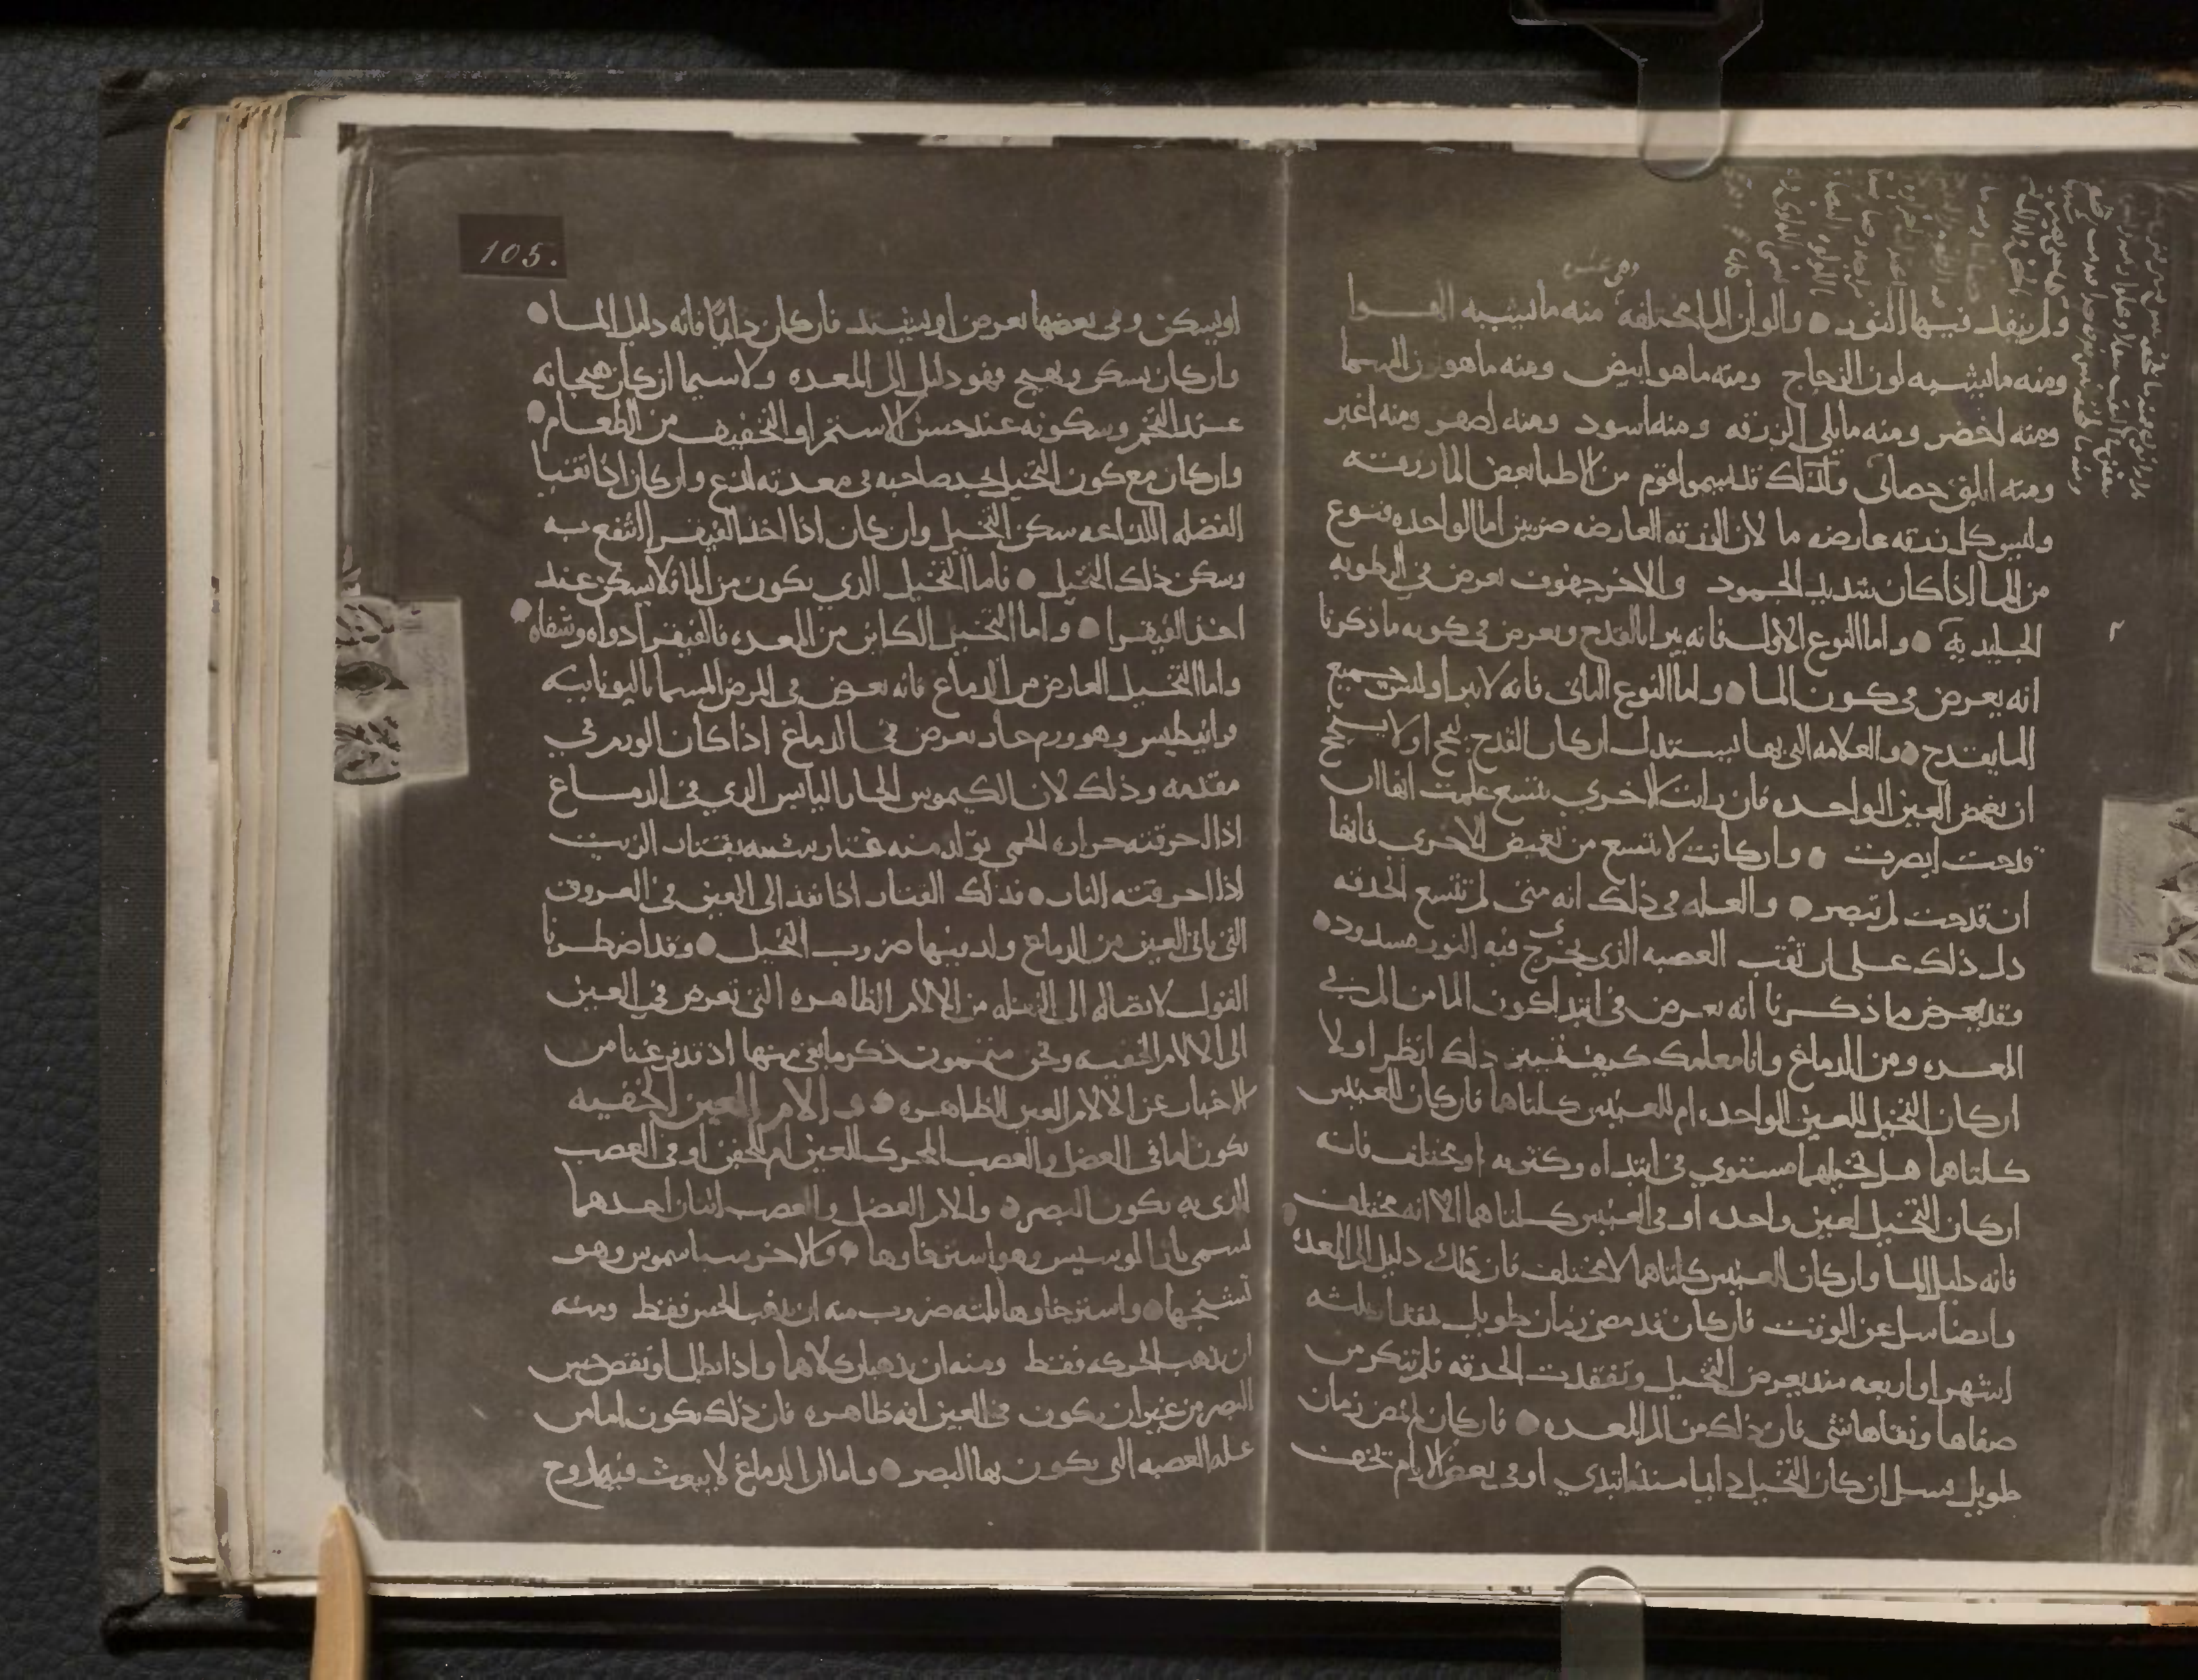 وهي عشره
ولم ينفذ فيها النور والوان الما مختلفه منه ما يشبه الهوا
ومنه ما يشبه لون الزجاج ومنه ما هو ابيض ومنه ما هو لون السما
ومنه اخضر ومنه مايل الى الزرقه ومنه اسود ومنه اصفر ومنه اغبر
ومنه ابلق جصاني ولذلك قد يسموا قوم من الاطبا بعض الما زرقته
وليس كل زرقه عارضه ما لان الزرقه العارضه ضربين اما الواحده فنوع
من الما اذا كان شديد الجمود والاخر جفوف يعرض في الرطوبه
الجليديه واما النوع الاول فانه يبرا بالقدح ويعرض في كونه ما ذكرنا
انه يعرض في كون الما واما النوع الثاني فانه لا يبرا وليس جميع
الما يقدح والعلامه التي بها يستدل ان كان القدح ينجح او لا ينجح
ان تغمض العين الواحده فان رايت الاخرى تتسع علمت انها ان
قدحت ابصرت وان كانت لا تتسع من تغميض الاخرى فانها
ان قدحت لم تبصر والعله في ذلك انه متى لم تتسع الحدقه
دل ذلك على ان ثقب العصبه الذي يخرج فيه النور مسدود
وقد يعرض ما ذكرنا انه يعرض في ابتدا كون الما من المري
المعده ومن الدماغ وانا معلمك كيف تميز ذلك انظر اولا
ان كان التخيل للعين الواحده ام للعينين كلتاهما فان كان للعينين
كلتاهما هل تخيلهما مستوي في ابتداه وكثرته او مختلف فانه
ان كان التخيل لعين واحده او في العينين كلتاهما الا انه مختلف
فانه دليل الما وان كان العينين كلتاهما لا مختلف فان ذلك دليل الى المعده
وايضا سل عن الوقت فان كان قد مضى زمان طويل مقدار ثلثه
اشهر او اربعه منذ يعرض التخيل وتفقدت الحدقه فلم تنكر من
صفاها ونقاها شي فان ذلك من الم المعده فان كان لم يمض زمان
طويل فسل ان كان التخيل دايما منذ ابتدي او في بعض الايام تخف
105.
او يسكن وفي بعضها يعرض او يشتد فان كان دايما فانه دليل الما
وان كان يسكن ويهيج فهو دليل الى المعده ولا سيما ان كان هيجانه
عند التخم وسكونه عند حسن الاستمرا والتخفيف من الطعام
وان كان مع كون التخيل يجد صاحبه في معدته لذع وان كان اذا تقيا
الفضله اللذاعه سكن التخيل وان كان اذا اخذ الفيقرا انتفع به
وسكن ذلك التخيل فاما التخيل الذي يكون من الما فلا يسكن عند
اخذ الفيقرا واما التخيل الكاين من المعده فالفيقرا دواه وشفاه
واما التخيل العارض من الدماغ فانه يعرض في المرض المسما باليونانيه
فرانيطيس وهو ورم حار يعرض في الدماغ اذا كان الورم في
مقدمه وذلك لان الكيموس الحار اليابس الذي في الدماغ
اذا احرقته حراره الحمى تولد منه قتار شبيه بقتار الزيت
اذا احرقته النار فذلك القتار اذا نفذ الى العين في العروق
التي تاتي العين من الدماغ ولد فيها ضروب التخيل وقد اضطرنا
القول لاتصاله الى النقله من الالام الظاهره التي تعرض في العين
الى الالام الخفيه ونحن متممون ذكر ما بقي منها اذ قد فرغنا من
الاخبار عن الالام العين الظاهره والام العين الخفيه
تكون اما في العضل والعصب المحرك للعين ام للجفن او في العصب
الذي به يكون البصر والام العضل والعصب اثنان احدهما
يسمى بارا لوسيس وهو استرخاوها والاخر سباسموس وهو
تشنجها واسترخاوها ثلثه ضروب منه ان يذهب الحس فقط ومنه
ان تذهب الحركه فقط ومنه ان يذهبا كلاهما واذا بطل او نقص حس
البصر من غير ان يكون في العين افه ظاهره فان ذلك يكون اما من
عله العصبه التي يكون بها البصر واما ان الدماغ لا يبعث فيه روح